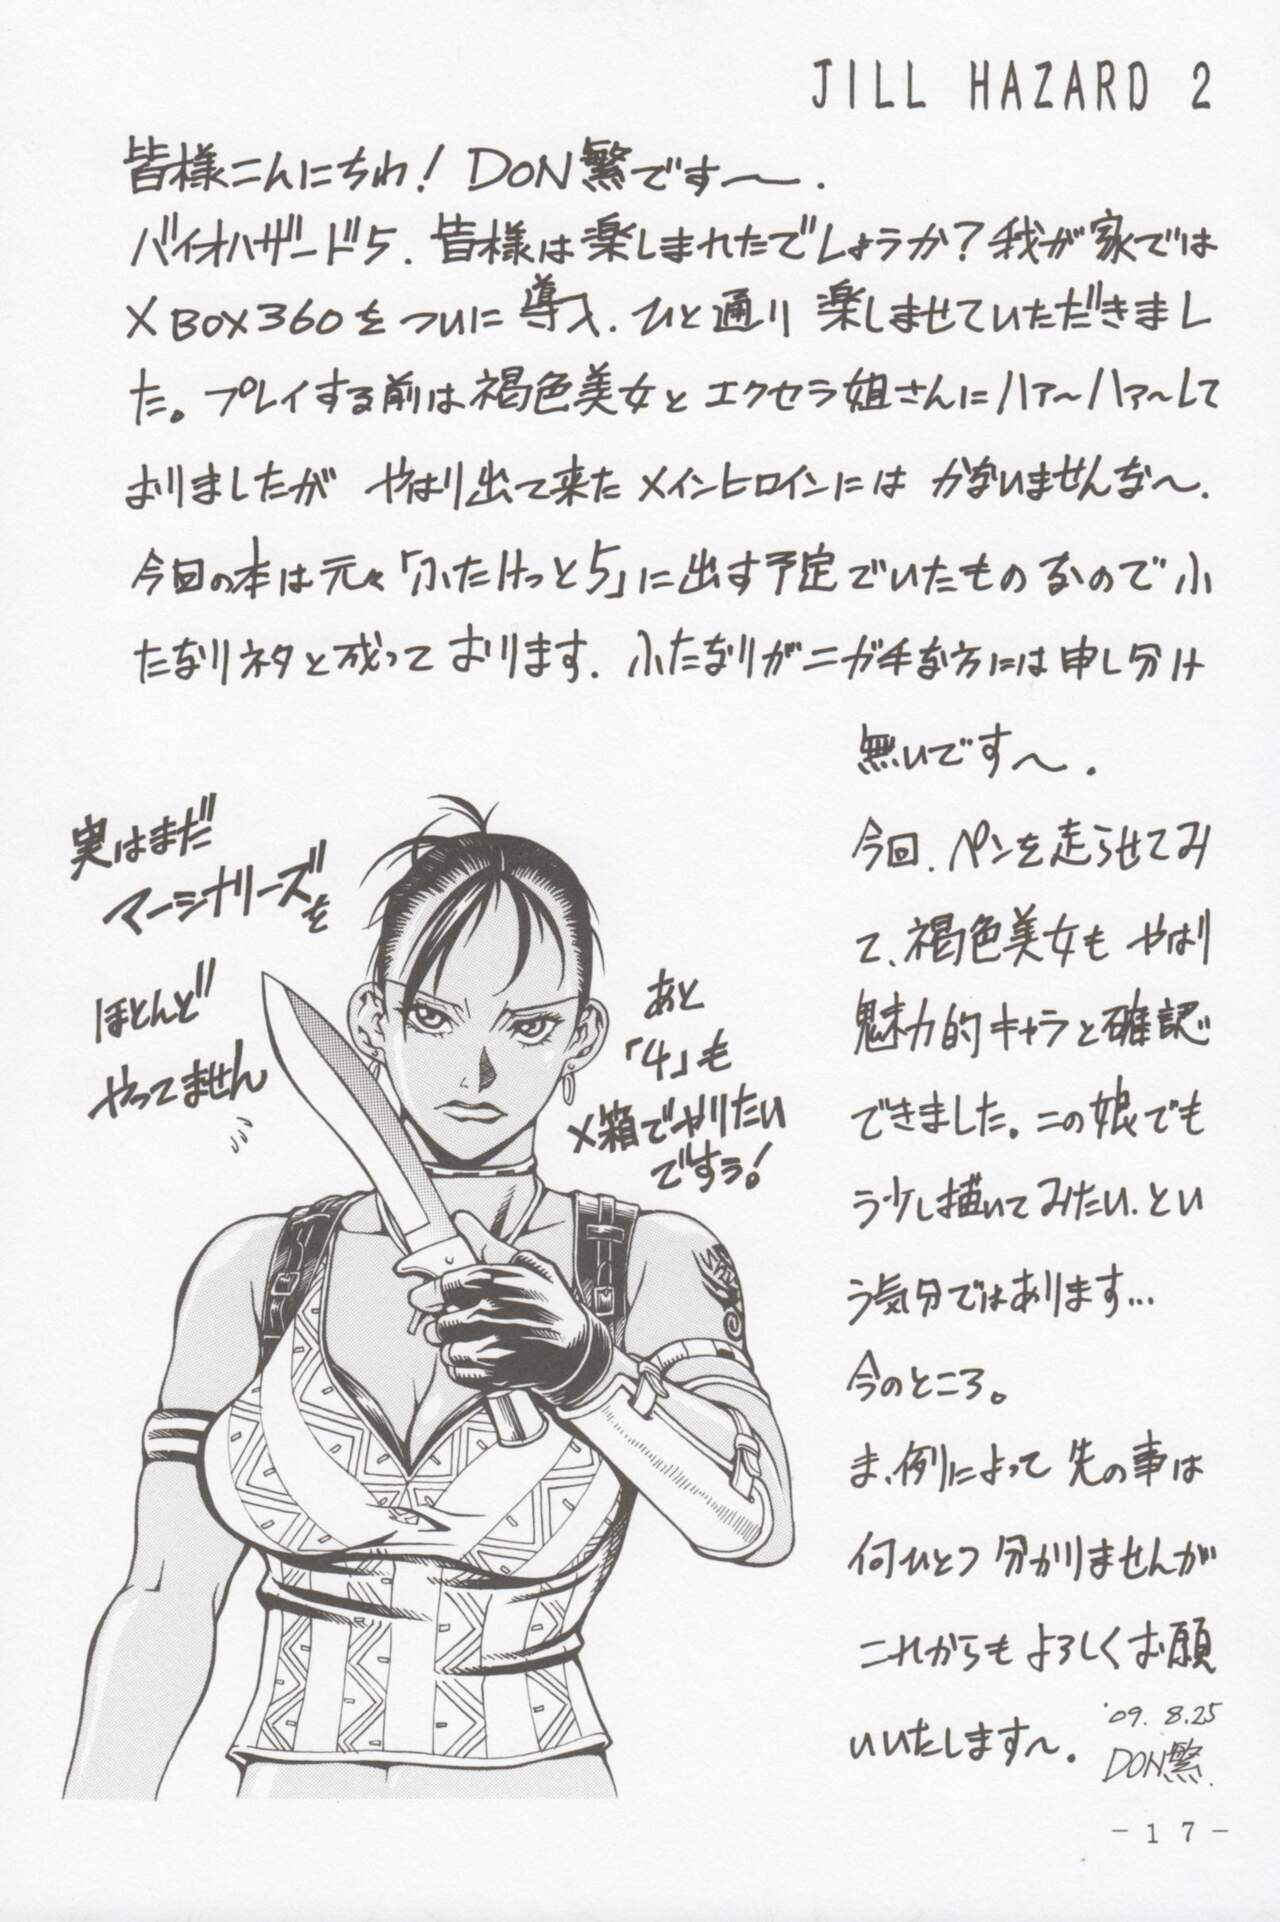 JILL HAZARD 2
皆様こんにちわ! DON繁です〜.
バイオハザード5. 皆様は楽しまれたでしょうか?我が家では
XBOX360をついに導入. ひと通り楽しませていただきまし
た。プレイする前は褐色美女とエクセラ姐さんにハァ〜ハァ〜して
おりましたが やはり出て来たメインヒロインには かないませんな〜.
今回の本は元々「ふたけっと5」に出す予定でいたものなのでふ
たなりネタと成っております. ふたなりがニガ手な方には申し分け
無いです〜.
今回. ペンを走らせてみ
て、褐色美女も やはり
魅力的キャラと確認
できました。この娘でも
う少し描いてみたい. とい
う気分ではあります...
今のところ。
ま、例によって 先の事は
何ひとつ 分かりませんが
これからも よろしくお願
いいたします〜.
'09. 8.25
DON繁.
実はまだ
マーシナリーズを
ほとんど
やってません
あと
「4」も
X箱でやりたい
ですぅ。!
-17-